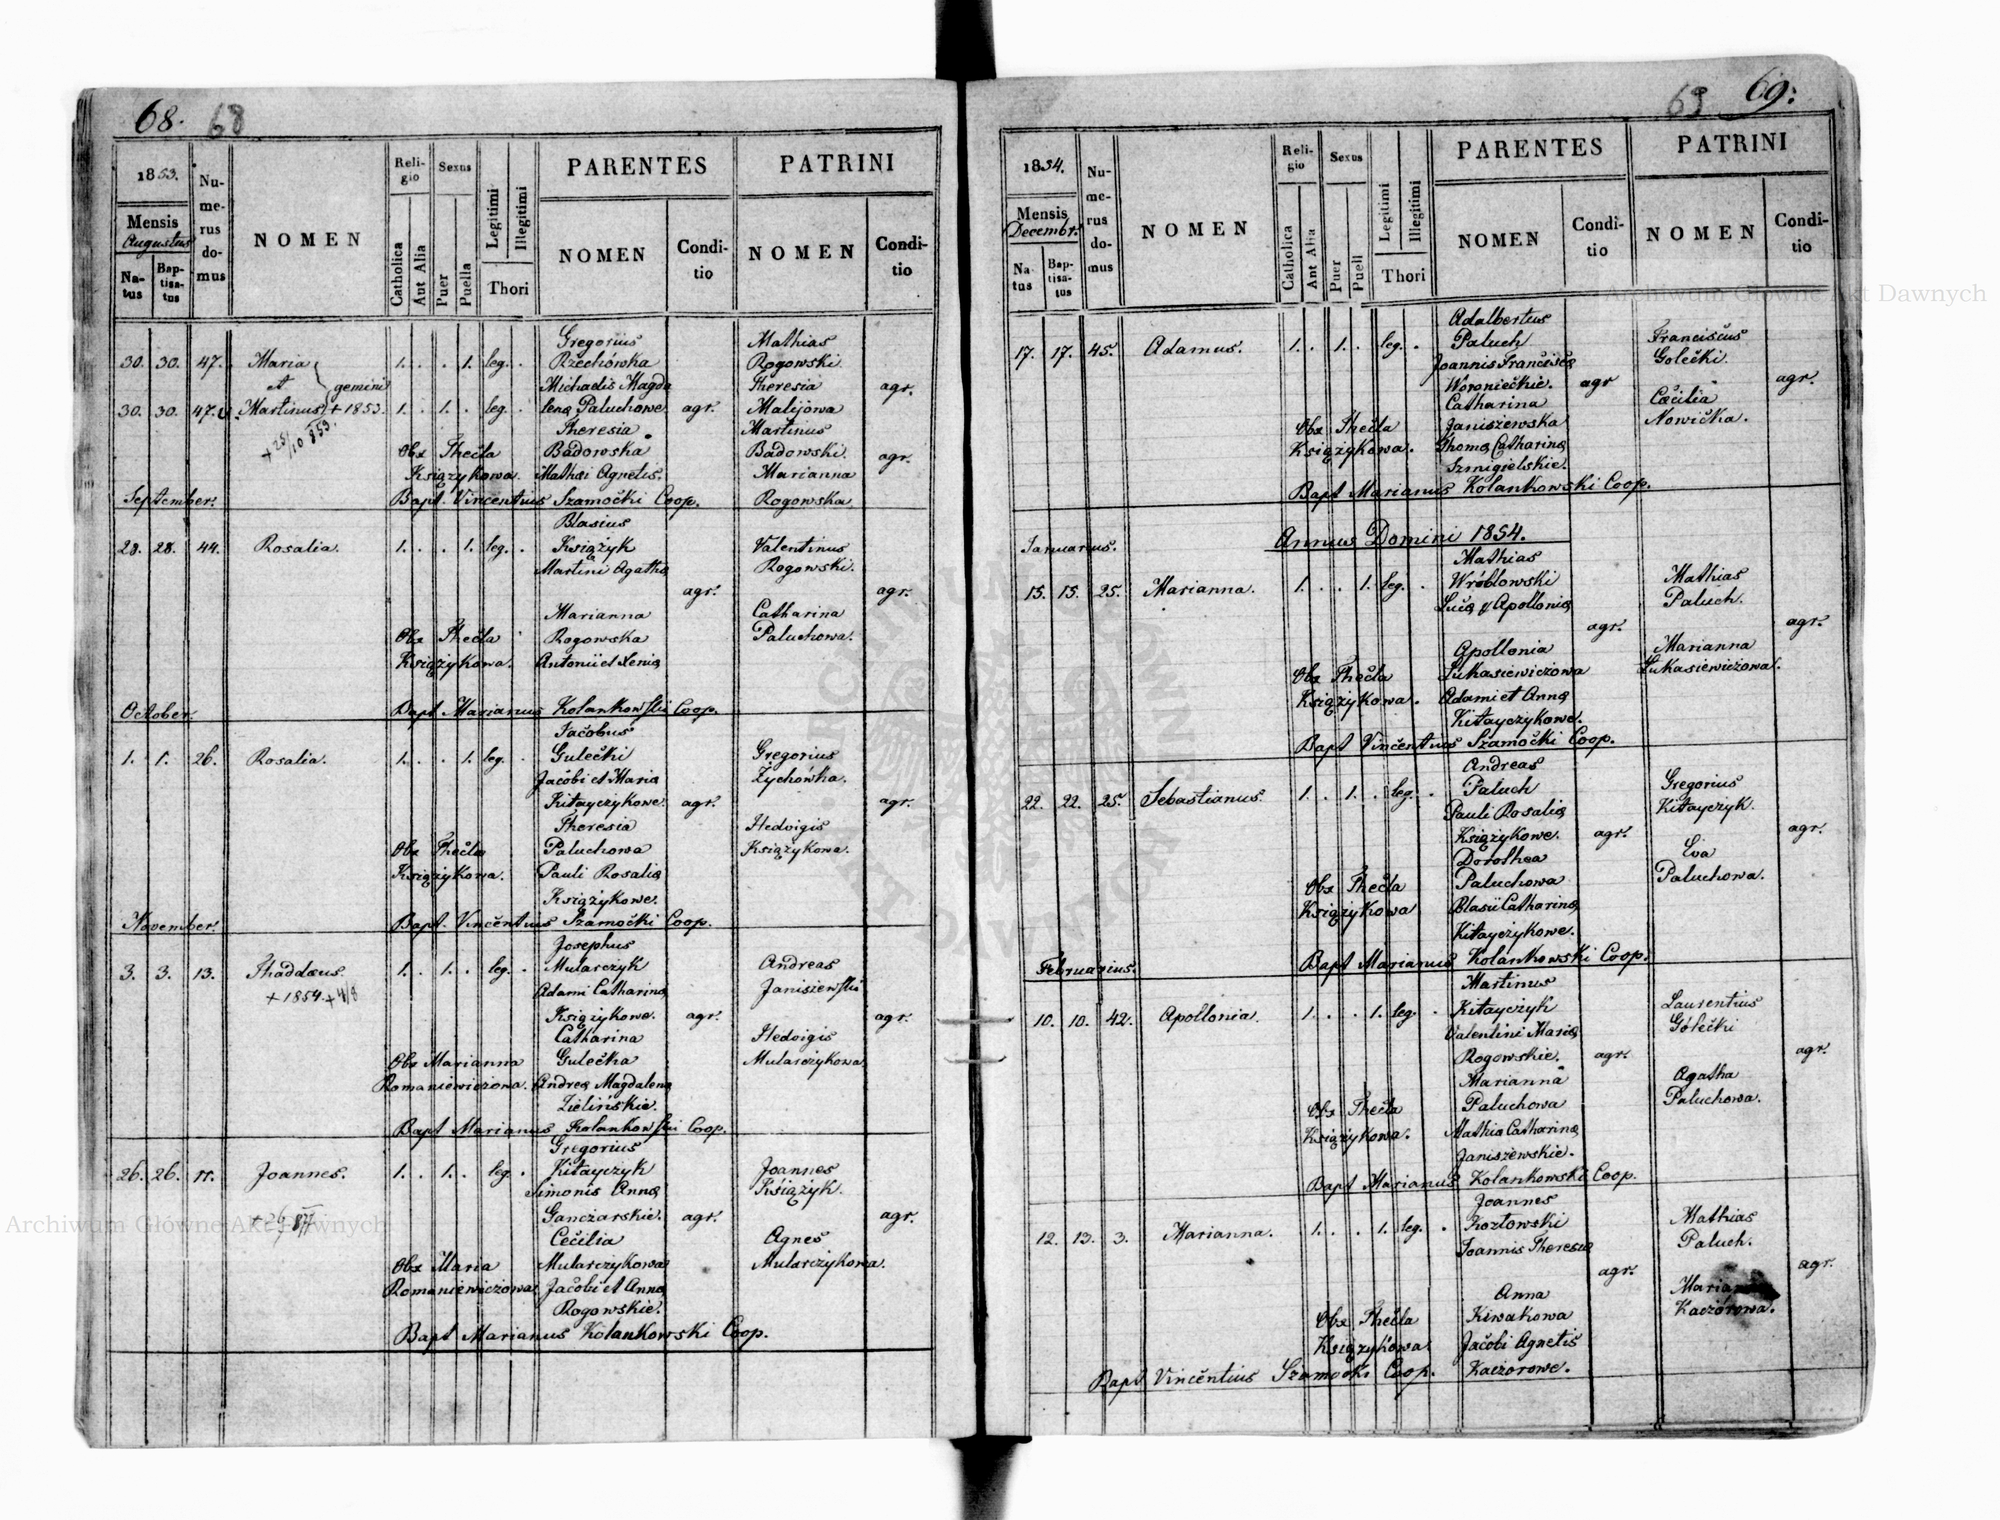 68. 68
1853.
Mensis
Augustus
Natus
Baptisatus
Numerus domus
NOMEN
Religio
Catholica
Aut Alia
Sexus
Puer
Puella
Legitimi
Illegitimi
Thori
PARENTES
NOMEN
Conditio
PATRINI
NOMEN
Conditio
Gregorius Mathias
30. 30. 47. Maria 1. . . 1. leg. . Rzechówka Rogowski
et gemini Michaelis Magda Theresia agr.
30. 30. 47. Martinus + 1853. 1. . 1. . leg. . lenæ Paluchowe agr. Malijowa
Theresia Martinus
Obx Thecla Badowska Badowski agr.
Książykowa. Mathæi Agnetis. Marianna
September. Bapt. Vincentius Szamocki Coop. Rogowska
Blasius
28. 28. 44. Rosalia. 1. . . 1. leg. . Książyk Valentinus
Martini Agathæ Rogowski.
agr. agr.
Marianna Catharina
Obx Thecla Rogowska Paluchowa.
Książykowa. Antonii et Xeniæ
October. Bapt Marianus Kolankowski Coop.
Jacobus
1. 1. 26. Rosalia. 1. . . 1. leg. . Gulecki Gregorius
Jacobi et Mariæ Zychówka.
Kitayczykowe. agr. agr.
Theresia Hedvigis
Obx Thecla Paluchowa Książykowa.
Książykowa. Pauli Rosaliæ
Książykowe.
November. Bapt. Vincentius Szamocki Coop.
Josephus
3. 3. 13. Thaddæus. 1. . 1. . leg. . Mularczyk Andreas
+ 1854 + 4/8 Adami Catharinæ Janiszewski
Książykowe. agr. agr.
Catharina Hedvigis
Obx Marianna Gulecka Mularczykowa
Romaniewiczowa. Andreæ Magdalenæ
Zielińskie.
Bapt Marianus Kolankowski Coop.
Gregorius
26. 26. 11. Joannes. 1. . 1. . leg. . Kitayczyk Joannes
Simonis Annæ Książyk.
Ganczarskie. agr. agr.
Cecilia Agnes
Obx Maria Mularczykowa Mularczykowa.
Romaniewiczowa. Jacobi et Annæ
Rogowskie.
Bapt Marianus Kolankowski Coop.
69 69.
1854.
Mensis
Decembr.
Natus
Baptisatus
Numerus domus
NOMEN
Religio
Catholica
Aut Alia
Sexus
Puer
Puell
Legitimi
Illegitimi
Thori
PARENTES
NOMEN
Conditio
PATRINI
NOMEN
Conditio
Adalbertus Franciscus
17. 17. 45. Adamus. 1. . 1. . leg. . Paluch Golecki.
Joannis Franciscæ
Woronieckie. agr Cæcilia agr.
Catharina Nowicka.
Obx Thecla Janiszewska
Książykowa. Thomæ Catharinæ
Szmigielskie.
Bapt Marianus Kolankowski Coop.
Januarius. Annus Domini 1854.
Mathias
15. 15. 25. Marianna. 1. . . 1. leg. . Wróblowski Mathias
Lucæ & Apolloniæ Paluch.
agr. agr.
Apollonia Marianna
Obx Thecla Łukasiewiczowa Łukasiewiczowa.
Książykowa. Adami et Annæ
Kitayczykowe.
Bapt Vincentius Szamocki Coop.
Andreas
22. 22. 25. Sebastianus. 1. . 1. . leg. . Paluch Gregorius
Pauli Rosaliæ Kitayczyk.
Książykowe. agr. agr.
Dorothea Eva
Obx Thecla Paluchowa Paluchowa.
Książykowa Blasii Catharinæ
Kitayczykowe.
Februarius. Bapt Marianus Kolankowski Coop.
Martinus
10. 10. 42. Apollonia. 1. . . 1. leg. . Kitayczyk Laurentius
Valentini Mariæ Gólecki
Rogowskie. agr. agr.
Marianna Agatha
Obx Thecla Paluchowa Paluchowa.
Książykowa. Mathiæ Catharinæ
Janiszewskie.
Bapt Marianus Kolankowski Coop.
Joannes
12. 13. 3. Marianna. 1. . . 1. leg. . Kozłowski Mathias
Joannis Theresiæ Paluch.
agr. agr.
Anna
Obx Thecla Kiwakowa Kaczórowa.
Książykowa Jacobi Agnetis
Bapt Vincentius Szamocki Coop. Kaczorowe.
Archiwum Główne Akt Dawnych
Archiwum Główne Akt Dawnych
ARCHIWUM GŁÓWNE AKT DAWNYCH